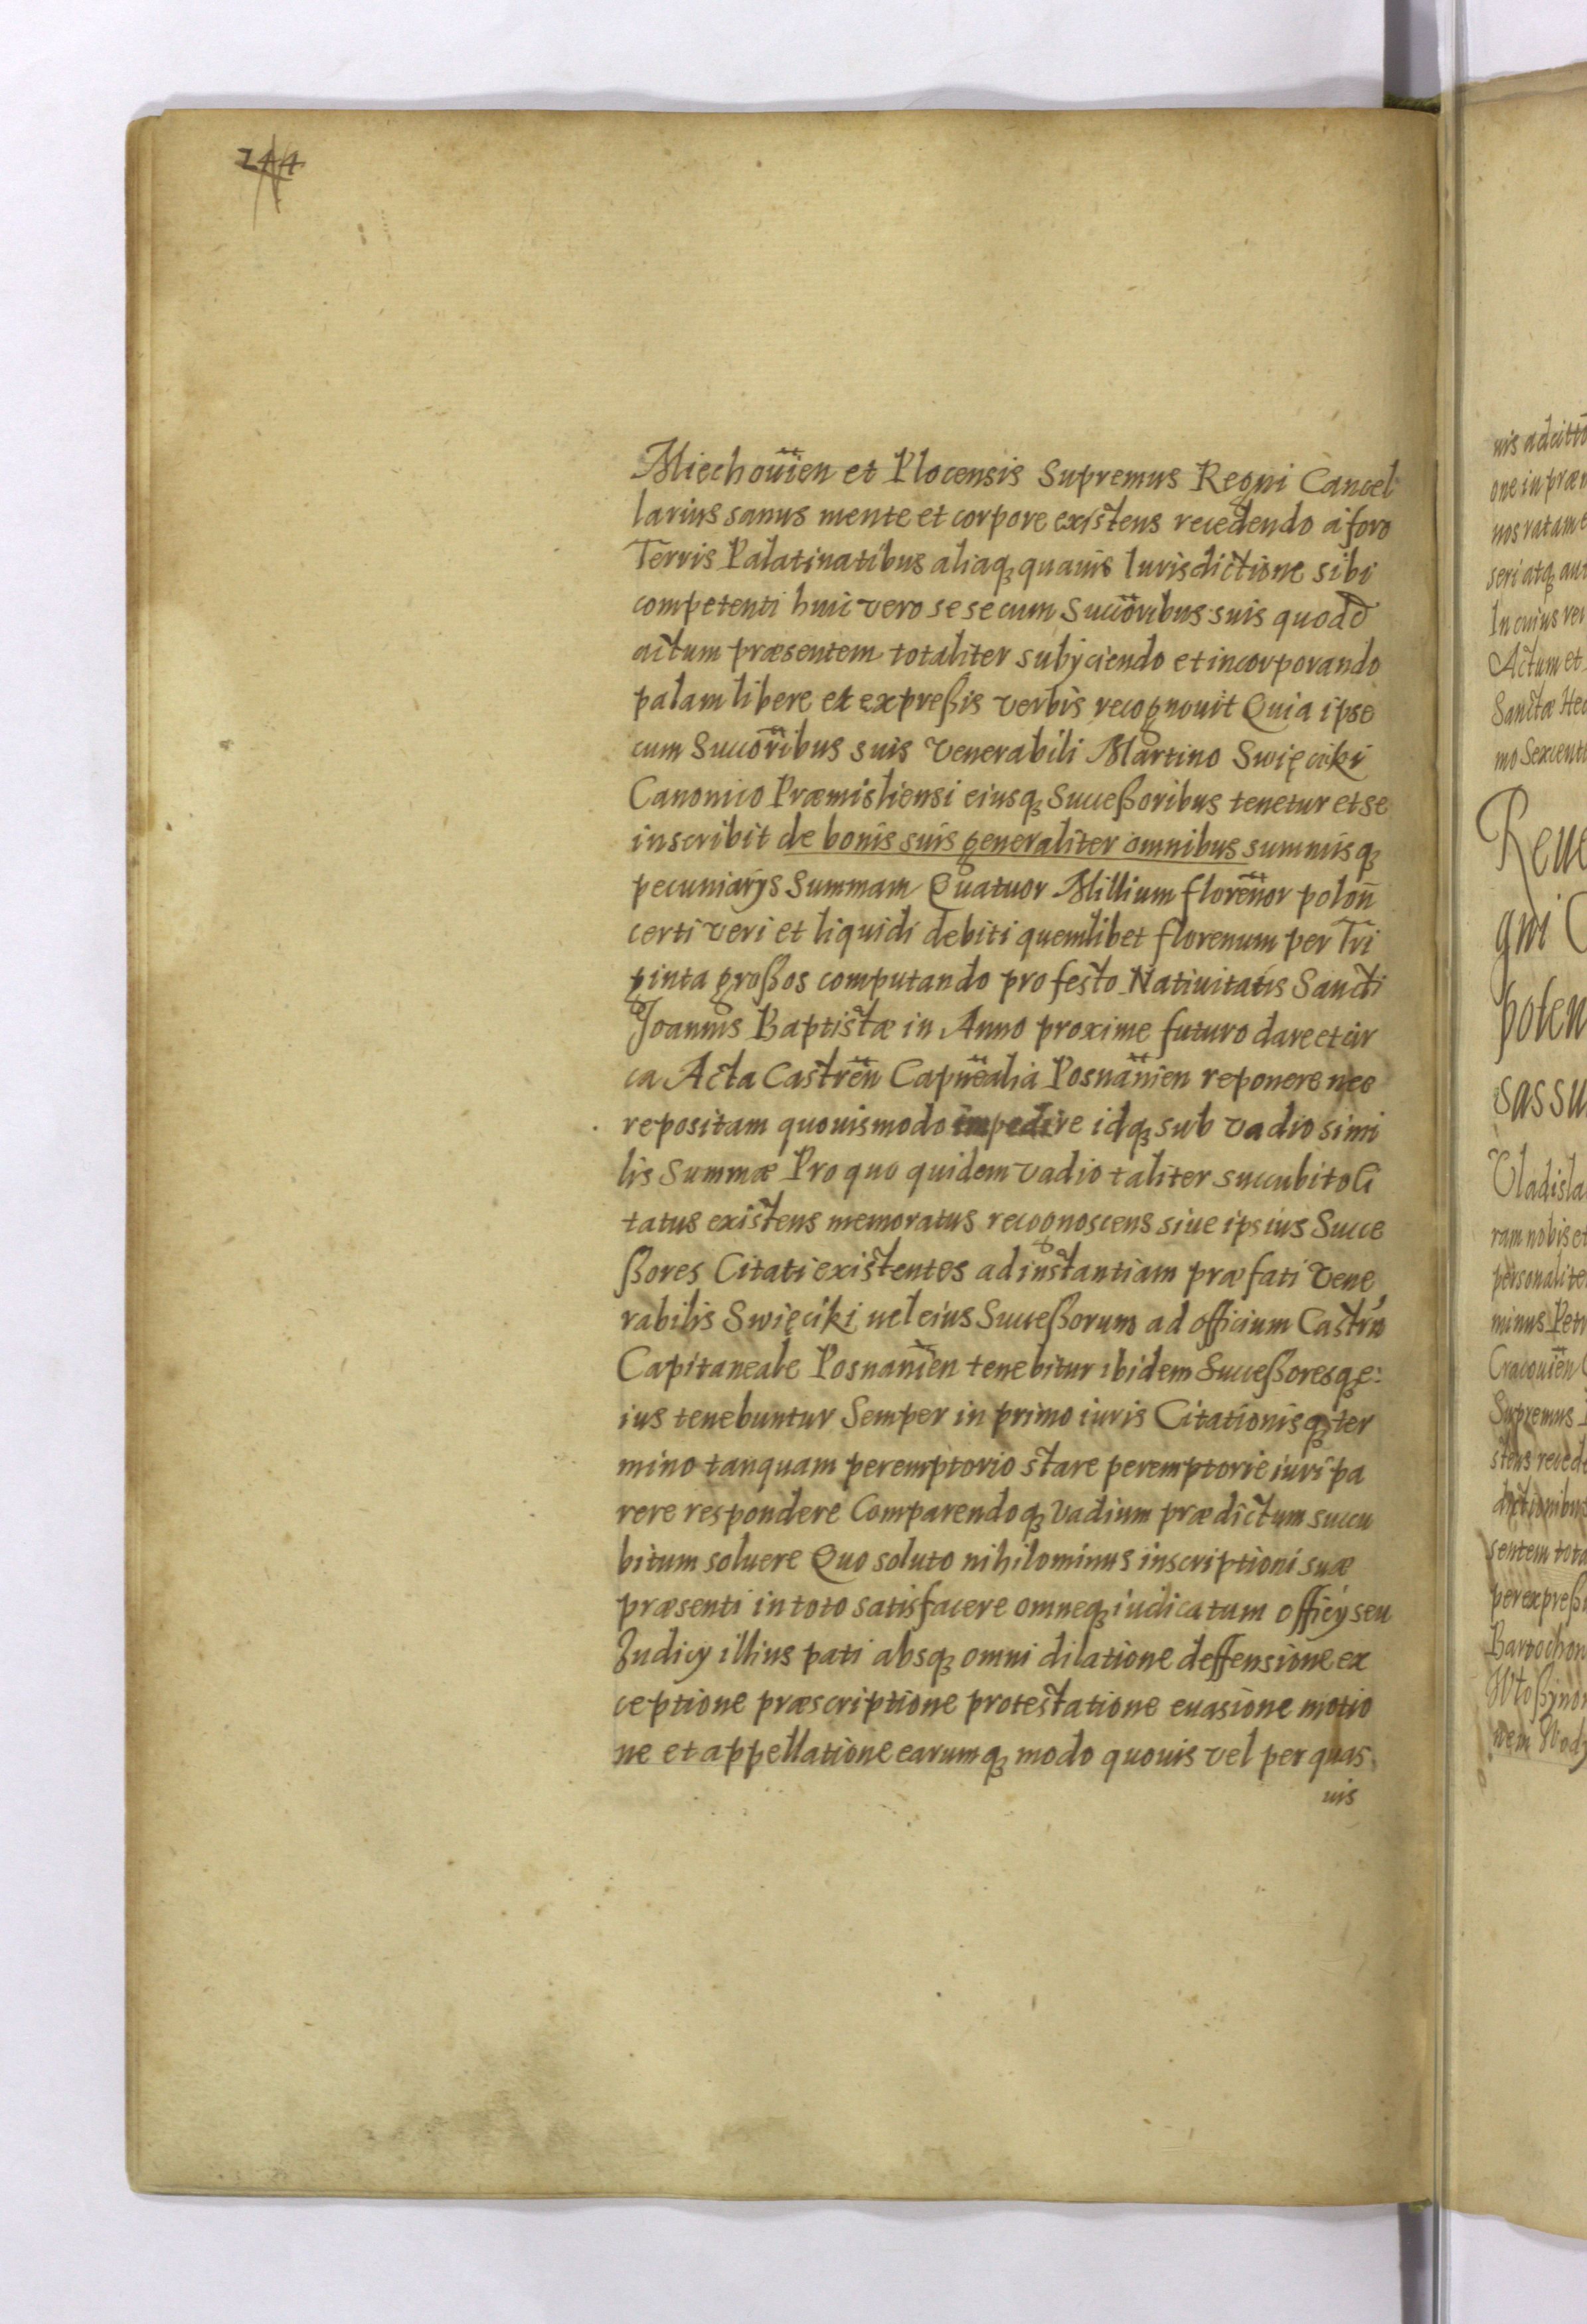 244
Miechouien et Plocensis Supremus Regni Cancel
larius sanus mente et corpore existens recedendo a foro
Terris Palatinatibus aliaq quauis Iurisdictione sibi
competenti huic vero se se cum Succoribus suis quodd
actum præsentem totaliter subijciendo et incorporando
palam libere et expreßis verbis recognouit Quia ipse
cum Succoribus suis Venerabili Martino Swięciki
Canonico Præmisliensi eiusq Succeßoribus tenetur et se
inscribit de bonis suis generaliter omnibus summisq
pecuniarijs Summam Quatuor Millium florenor polon̄
certi veri et liquidi debiti quemlibet florenum per Tri
ginta großos computando pro festo Natiuitatis Sancti
Joannis Baptistæ in Anno proxime futuro dare et cir
ca Acta Castren Capnealia Posnanien reponere nec
repositam quouismodo impedire idq sub vadio simi
lis Summæ Pro quo quidem vadio taliter succubito Ci
tatus existens memoratus recognoscens siue ipsius Succe
ßores Citati existentes ad instantiam præfati Vene
rabilis Swięciki uel eius Succeßorum ad officium Castrn
Capitaneale Posnanien tenebitur ibidem Succeßoresq e:
ius tenebuntur Semper in primo iuris Citationisq ter
mino tanquam peremptorio stare peremptorie iuri pa
rere respondere Comparendoq vadium prædictum succu
bitum soluere Quo soluto nihilominus inscriptioni suæ
præsenti in toto satisfacere omneq iudicatum officij seu
Judicij illius pati absq omni dilatione deffensione ex
ceptione præscriptione protestatione euasione motio
ne et appellatione earumq modo quouis vel per quas
uis
one in præ
nos ratam e
seri atq au
In cuius rei
Actum et
Sanctæ He
mo Sexcent
Reue
gni C
poten
sassu
Vladisla
ram nobis et
personalite
minus Petr
Cracouien
Supremus
stens reced
dictionibus
sentem tota
per expreßi